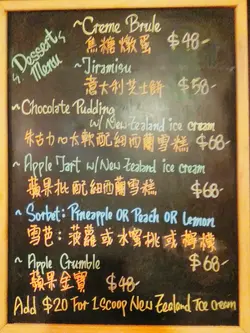 Dessert Menu
~Creme Brule
焦糖燉蛋 $48-
~Tiramisu
意大利芝士餅 $58-
~Chocolate Pudding
w/ New Zealand ice cream
朱古力心太軟配紐西蘭雪糕 $68-
~Apple Tart w/ New Zealand ice cream
蘋果批配紐西蘭雪糕 $68-
~Sorbet: Pineapple OR Peach OR Lemon
雪芭: 菠蘿 或 水蜜桃 或 檸檬
$68-
~Apple Crumble
蘋果金寶 $48-
Add $20 For 1 Scoop New Zealand Ice Cream